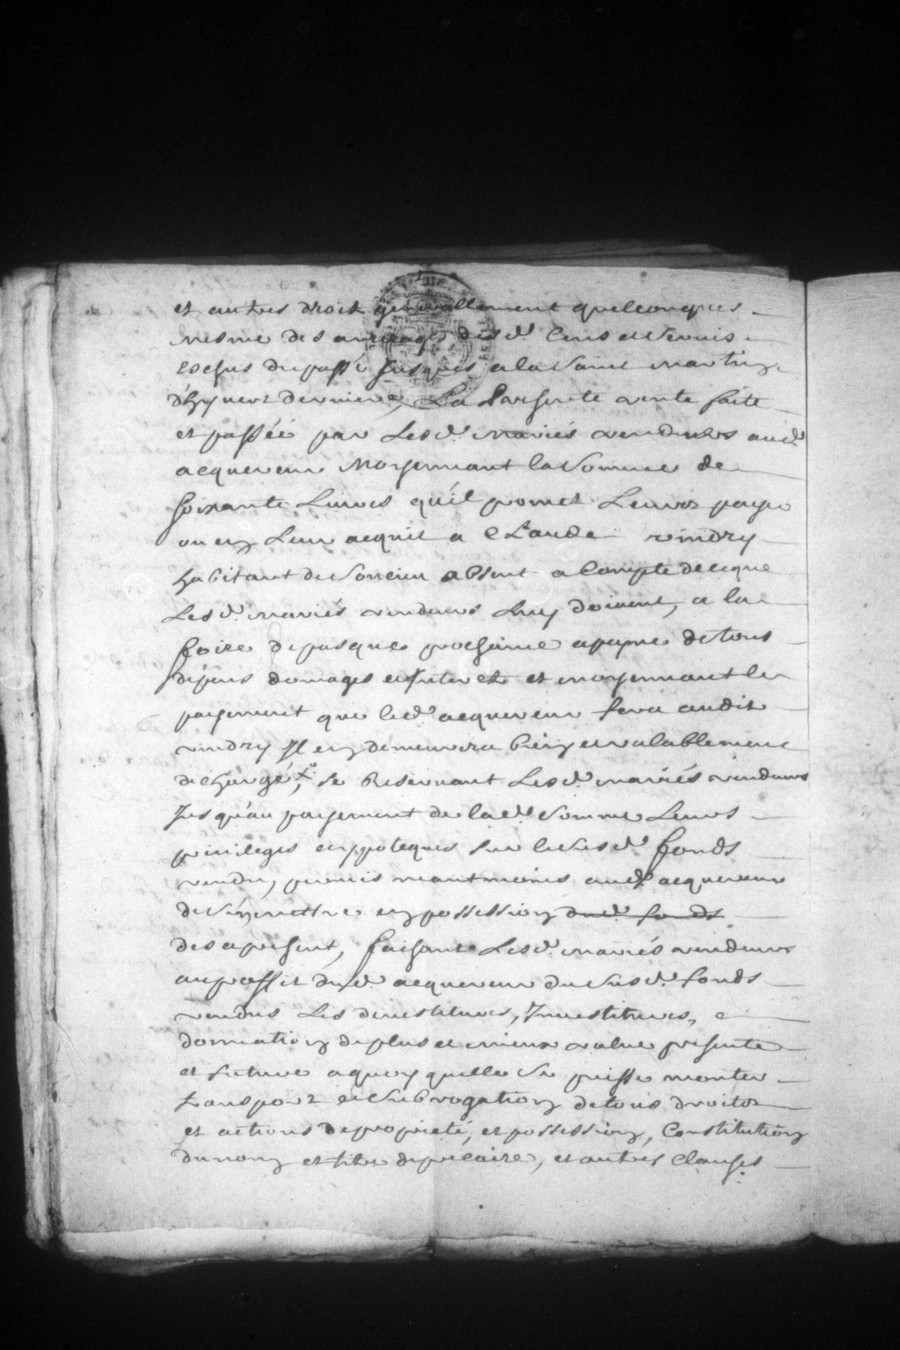 et autres droit generallement quelconques
mesme des arrerages desd. Cens et servis
escheus du passé jusques a la saint martin
d'hyvert derniere, La presente vente faite
et passée par Lesd. mariés vendeurs aud.
acquereur moyennant la somme de
soixante Livres qu'il promet Leurs payer
ou en Leur acquit a Claude vindry
habitant de soncieu absent a Compte de ce que
Lesd. mariés vendeurs Luy doivent, a la
foire de pasques prochaine a peyne de tous
depens domages et interetz et moyennant le
payement que led. acquereur fera audit
vindry Il en demeurera bien et valablement
dechargé, se Reservant Lesd. mariés vendeurs
Jusqu'au payement de lad. somme Leurs
privileges et ypoteques sur le susd. fonds
vendu, permis neantmoins aud. acquereur
de s'en mettre en possession dud. fonds
des a present, faisant Lesd. mariés vendeurs
au proffit dud. acquereur du susd. fonds
vendus Les devestitures, Investitures, e
donnation de plus et mieux value presente
et future a quoy quelle se puisse monter
transport et subrogation de tous droitz
et actions de proprieté, et possession, Constitution
du nom et titre de precaire, et autres clauses